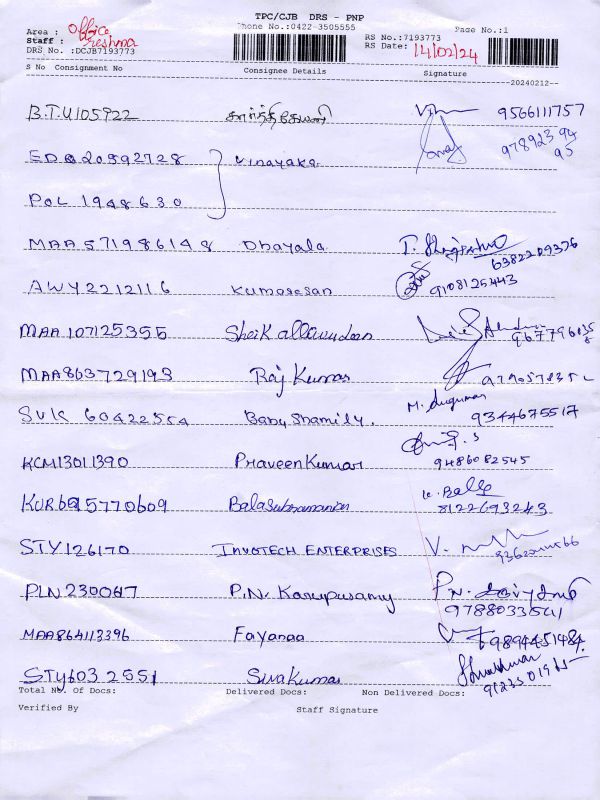 TPC/CJB DRS - PNP
Phone No.:0422-3505555
Page No.:1
Area : Office
RS No.:7193773
Staff : Reshma
RS Date: 14/02/24
DRS No. :DCJB7193773
S No Consignment No Consignee Details Signature
20240212
B.T.U105922 கார்த்திகேயணி 9566111757
EDQ20592728 Vinayaka 978923 94 95
POL 1948630
MAA571986148 Dhayala 6382209376
AWY2212116 Kumaresan 9108125443
MAA107125355 Sheik allavudeen
MAA863729193 Raj Kumar
SVK 60422554 Baby Shamily. M. Suguman 9344675517
KCM13011390 PraveenKumar 9486082545
KUR695770609 Balasubramanian K. Balle 8122693243
STY126170 INVOTECH ENTERPRISES
PLN230047 P.N. Karupusamy 9788033541
MAA864113396 Fayanaa 9894451484
STY603 2551 Sivakumar
Total No. Of Docs: Delivered Docs: Non Delivered Docs:
Verified By Staff Signature